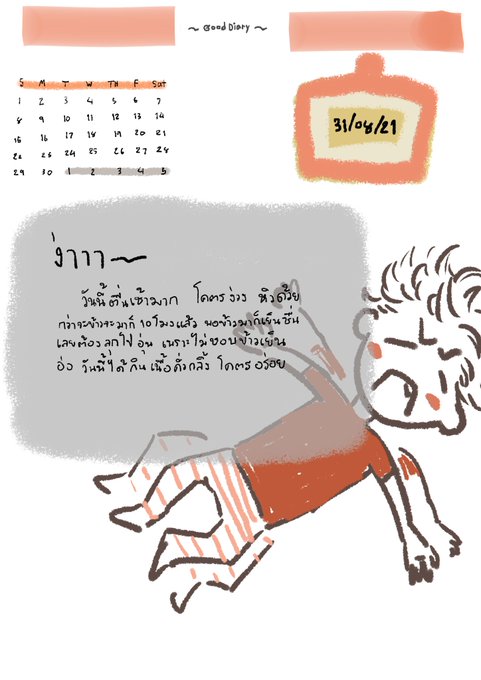 ~ Good Diary ~
31/08/21
S M T W TH F Sat
1 2 3 4 5 6 7
8 9 10 11 12 13 14
15 16 17 18 19 20 21
22 23 24 25 26 27 28
29 30 1 2 3 4 5
ง่าาา~
วันนี้ตื่นเช้ามาก โคตรง่วง หิวด้วย
กว่าจะข้าวจะมาก็ 10 โมงแล้ว พอข้าวมาก็เย็นชื่น
เลยต้องลุกไปอุ่น เพราะไม่ชอบข้าวเย็น
อ่อ วันนี้ได้กินเนื้อคั่วกลิ้ง โคตรอร่อย